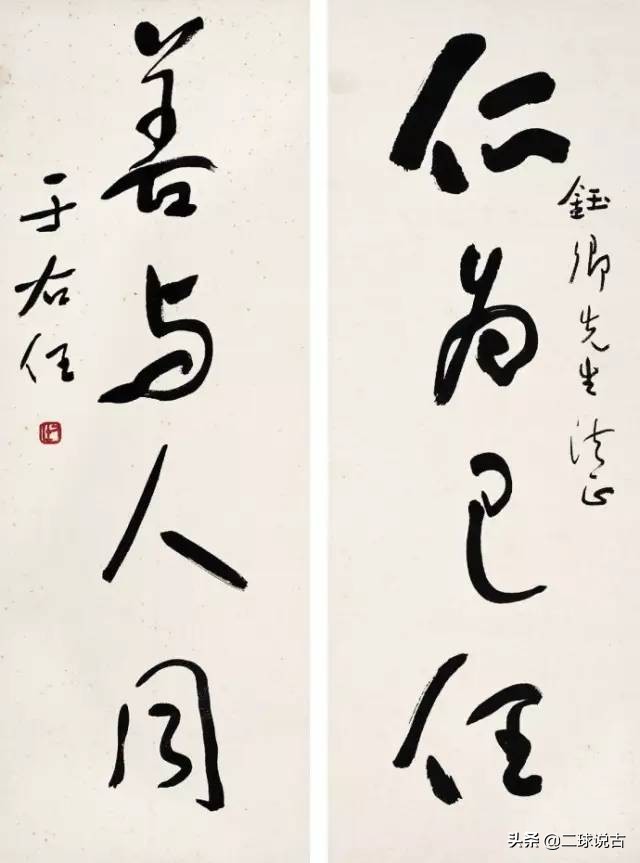 鈺卿先生法正
仁为己任
善与人同
于右任
头条@二球说古